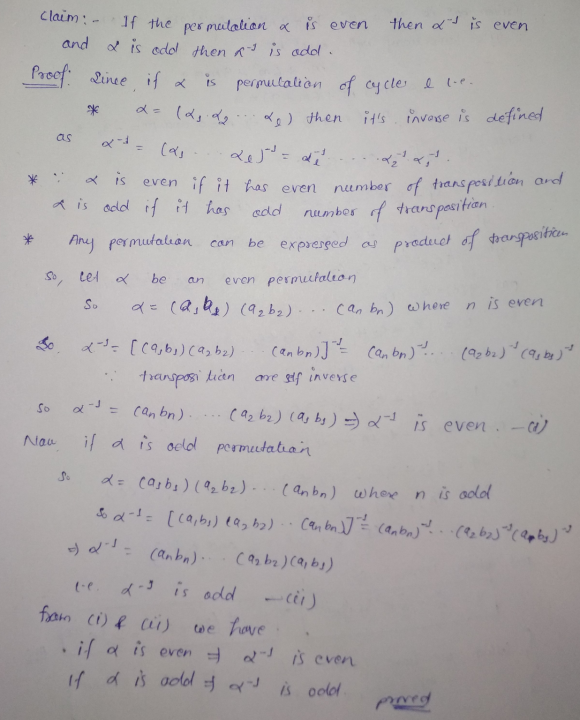 Claim:- If the permutation α is even then α⁻¹ is even
and α is odd then α⁻¹ is odd.
Proof: Since if α is permutation of cycles l i.e.
* α = (α₁ α₂ ... αₗ) then it's inverse is defined
as α⁻¹ = (α₁ ... αₗ)⁻¹ = αₗ⁻¹ ..... α₂⁻¹ α₁⁻¹.
* ∵ α is even if it has even number of transposition and
α is odd if it has odd number of transposition
* Any permutation can be expressed as product of transposition
So, let α be an even permutation
So α = (a₁ b₁) (a₂ b₂) ... (aₙ bₙ) where n is even
So α⁻¹ = [(a₁ b₁) (a₂ b₂) ... (aₙ bₙ)]⁻¹ = (aₙ bₙ)⁻¹ ... (a₂ b₂)⁻¹ (a₁ b₁)⁻¹
∵ transposition are self inverse
so α⁻¹ = (aₙ bₙ) .... (a₂ b₂) (a₁ b₁) ⇒ α⁻¹ is even. —(i)
Now if α is odd permutation
So α = (a₁ b₁) (a₂ b₂) ... (aₙ bₙ) where n is odd
So α⁻¹ = [(a₁ b₁) (a₂ b₂) .. (aₙ bₙ)]⁻¹ = (aₙ bₙ)⁻¹ ... (a₂ b₂)⁻¹ (a₁ b₁)⁻¹
⇒ α⁻¹ = (aₙ bₙ) ... (a₂ b₂) (a₁ b₁)
i.e. α⁻¹ is odd —(ii)
from (i) & (ii) we have
. if α is even ⇒ α⁻¹ is even
If α is odd ⇒ α⁻¹ is odd. proved